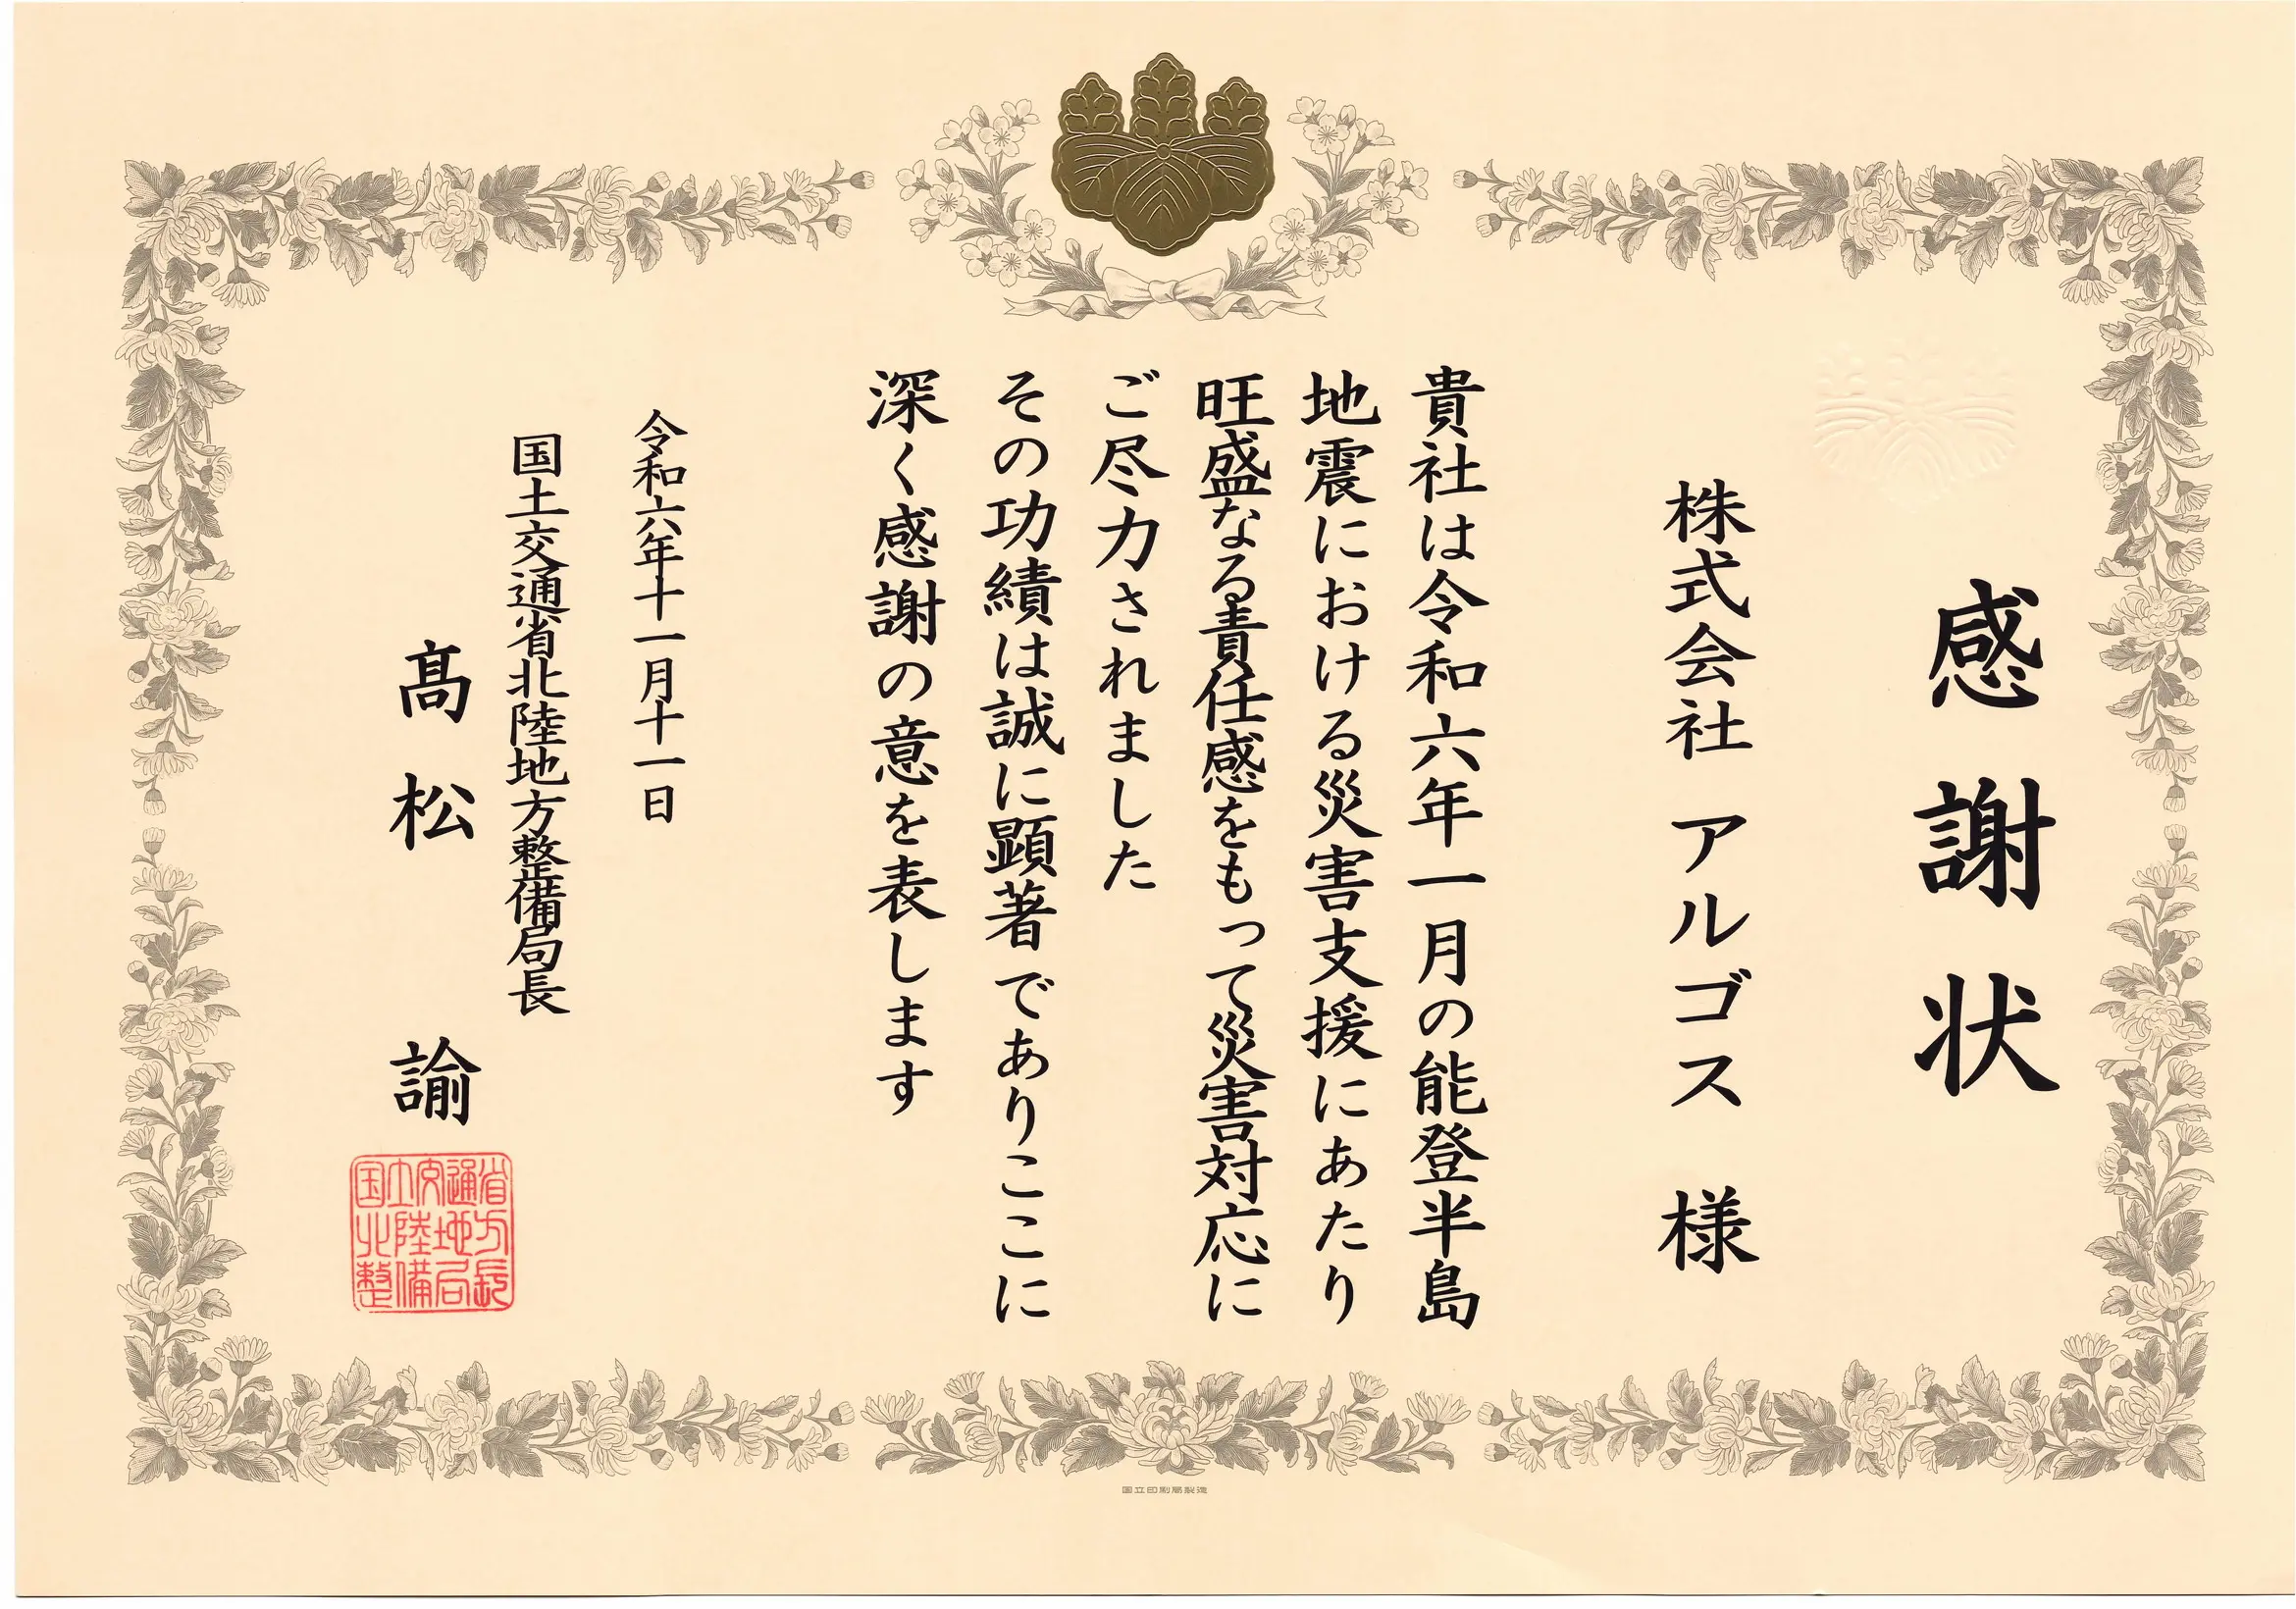 感謝状
株式会社 アルゴス 様
貴社は令和六年一月の能登半島
地震における災害支援にあたり
旺盛なる責任感をもって災害対応に
ご尽力されました
その功績は誠に顕著でありここに
深く感謝の意を表します
令和六年十一月十一日
国土交通省北陸地方整備局長
髙松 諭
国土交通省
北陸地方
整備局長
国立印刷局製造